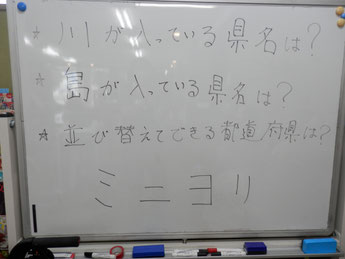 * 川が入っている県名は?
* 島が入っている県名は?
* 並び替えてできる都道府県は?
ミニヨリ